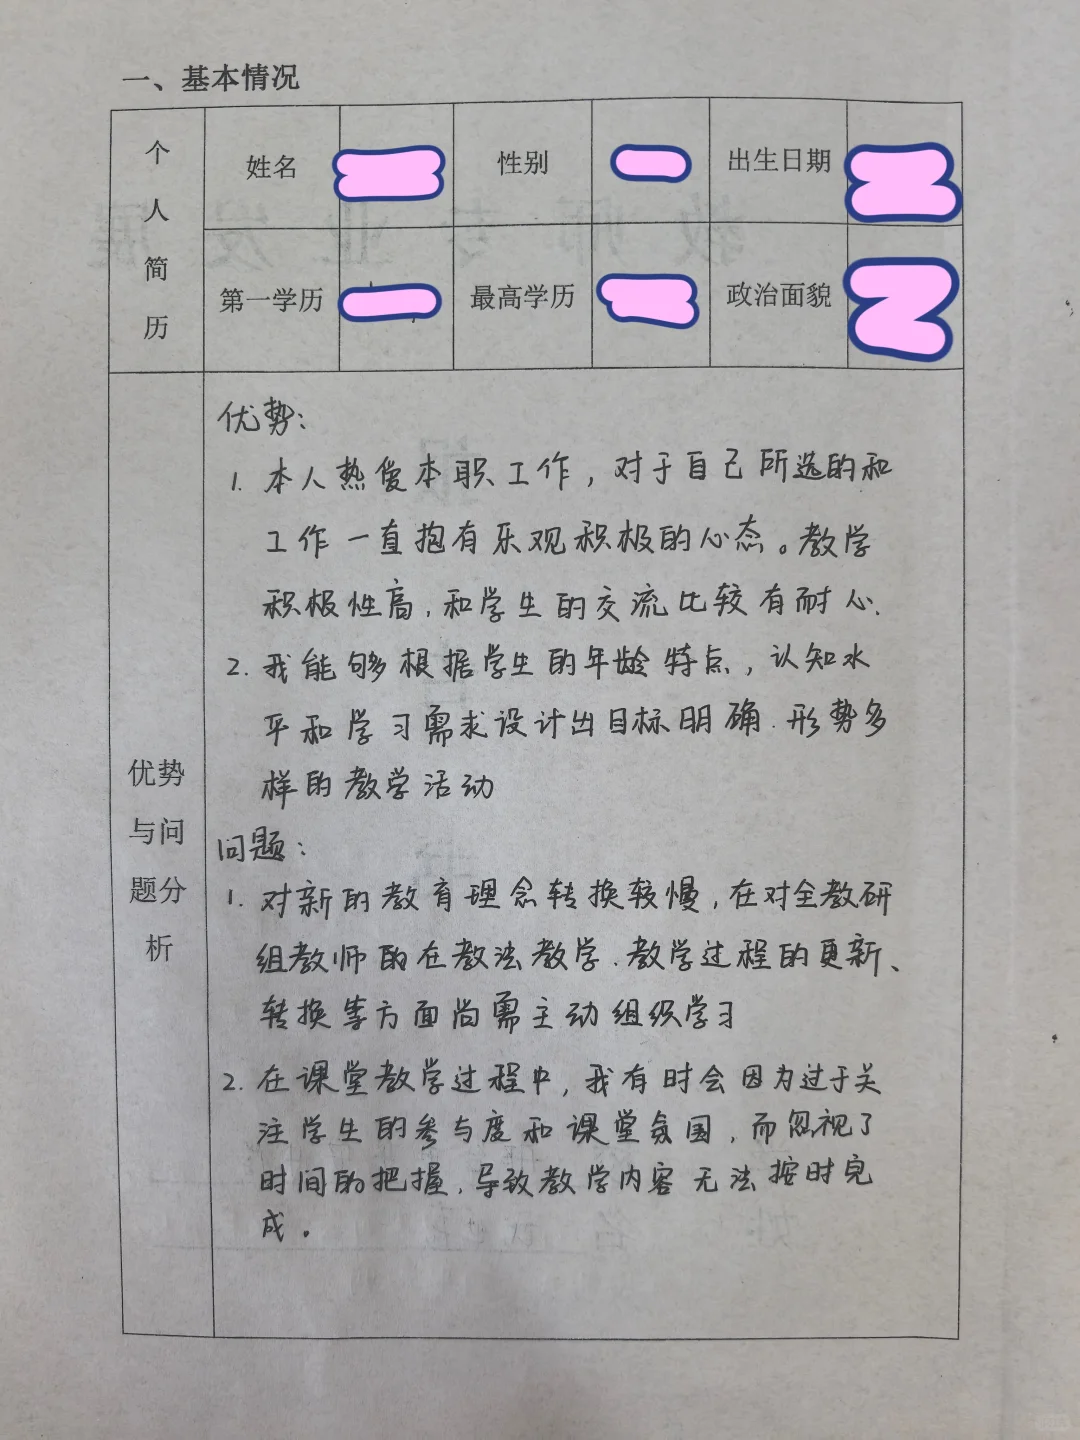 一、基本情况
个人简历
姓名
性别
出生日期
第一学历
最高学历
政治面貌
优势与问题分析
优势:
1. 本人热爱本职工作，对于自己所选的和
工作一直抱有乐观积极的心态。教学
积极性高，和学生的交流比较有耐心.
2. 我能够根据学生的年龄特点，认知水
平和学习需求设计出目标明确.形势多
样的教学活动
问题:
1. 对新的教育理念转换较慢，在对全教研
组教师的在教法教学.教学过程的更新、
转换等方面尚需主动组织学习
2. 在课堂教学过程中，我有时会因为过于关
注学生的参与度和课堂氛围，而忽视了
时间的把握，导致教学内容无法按时完
成。